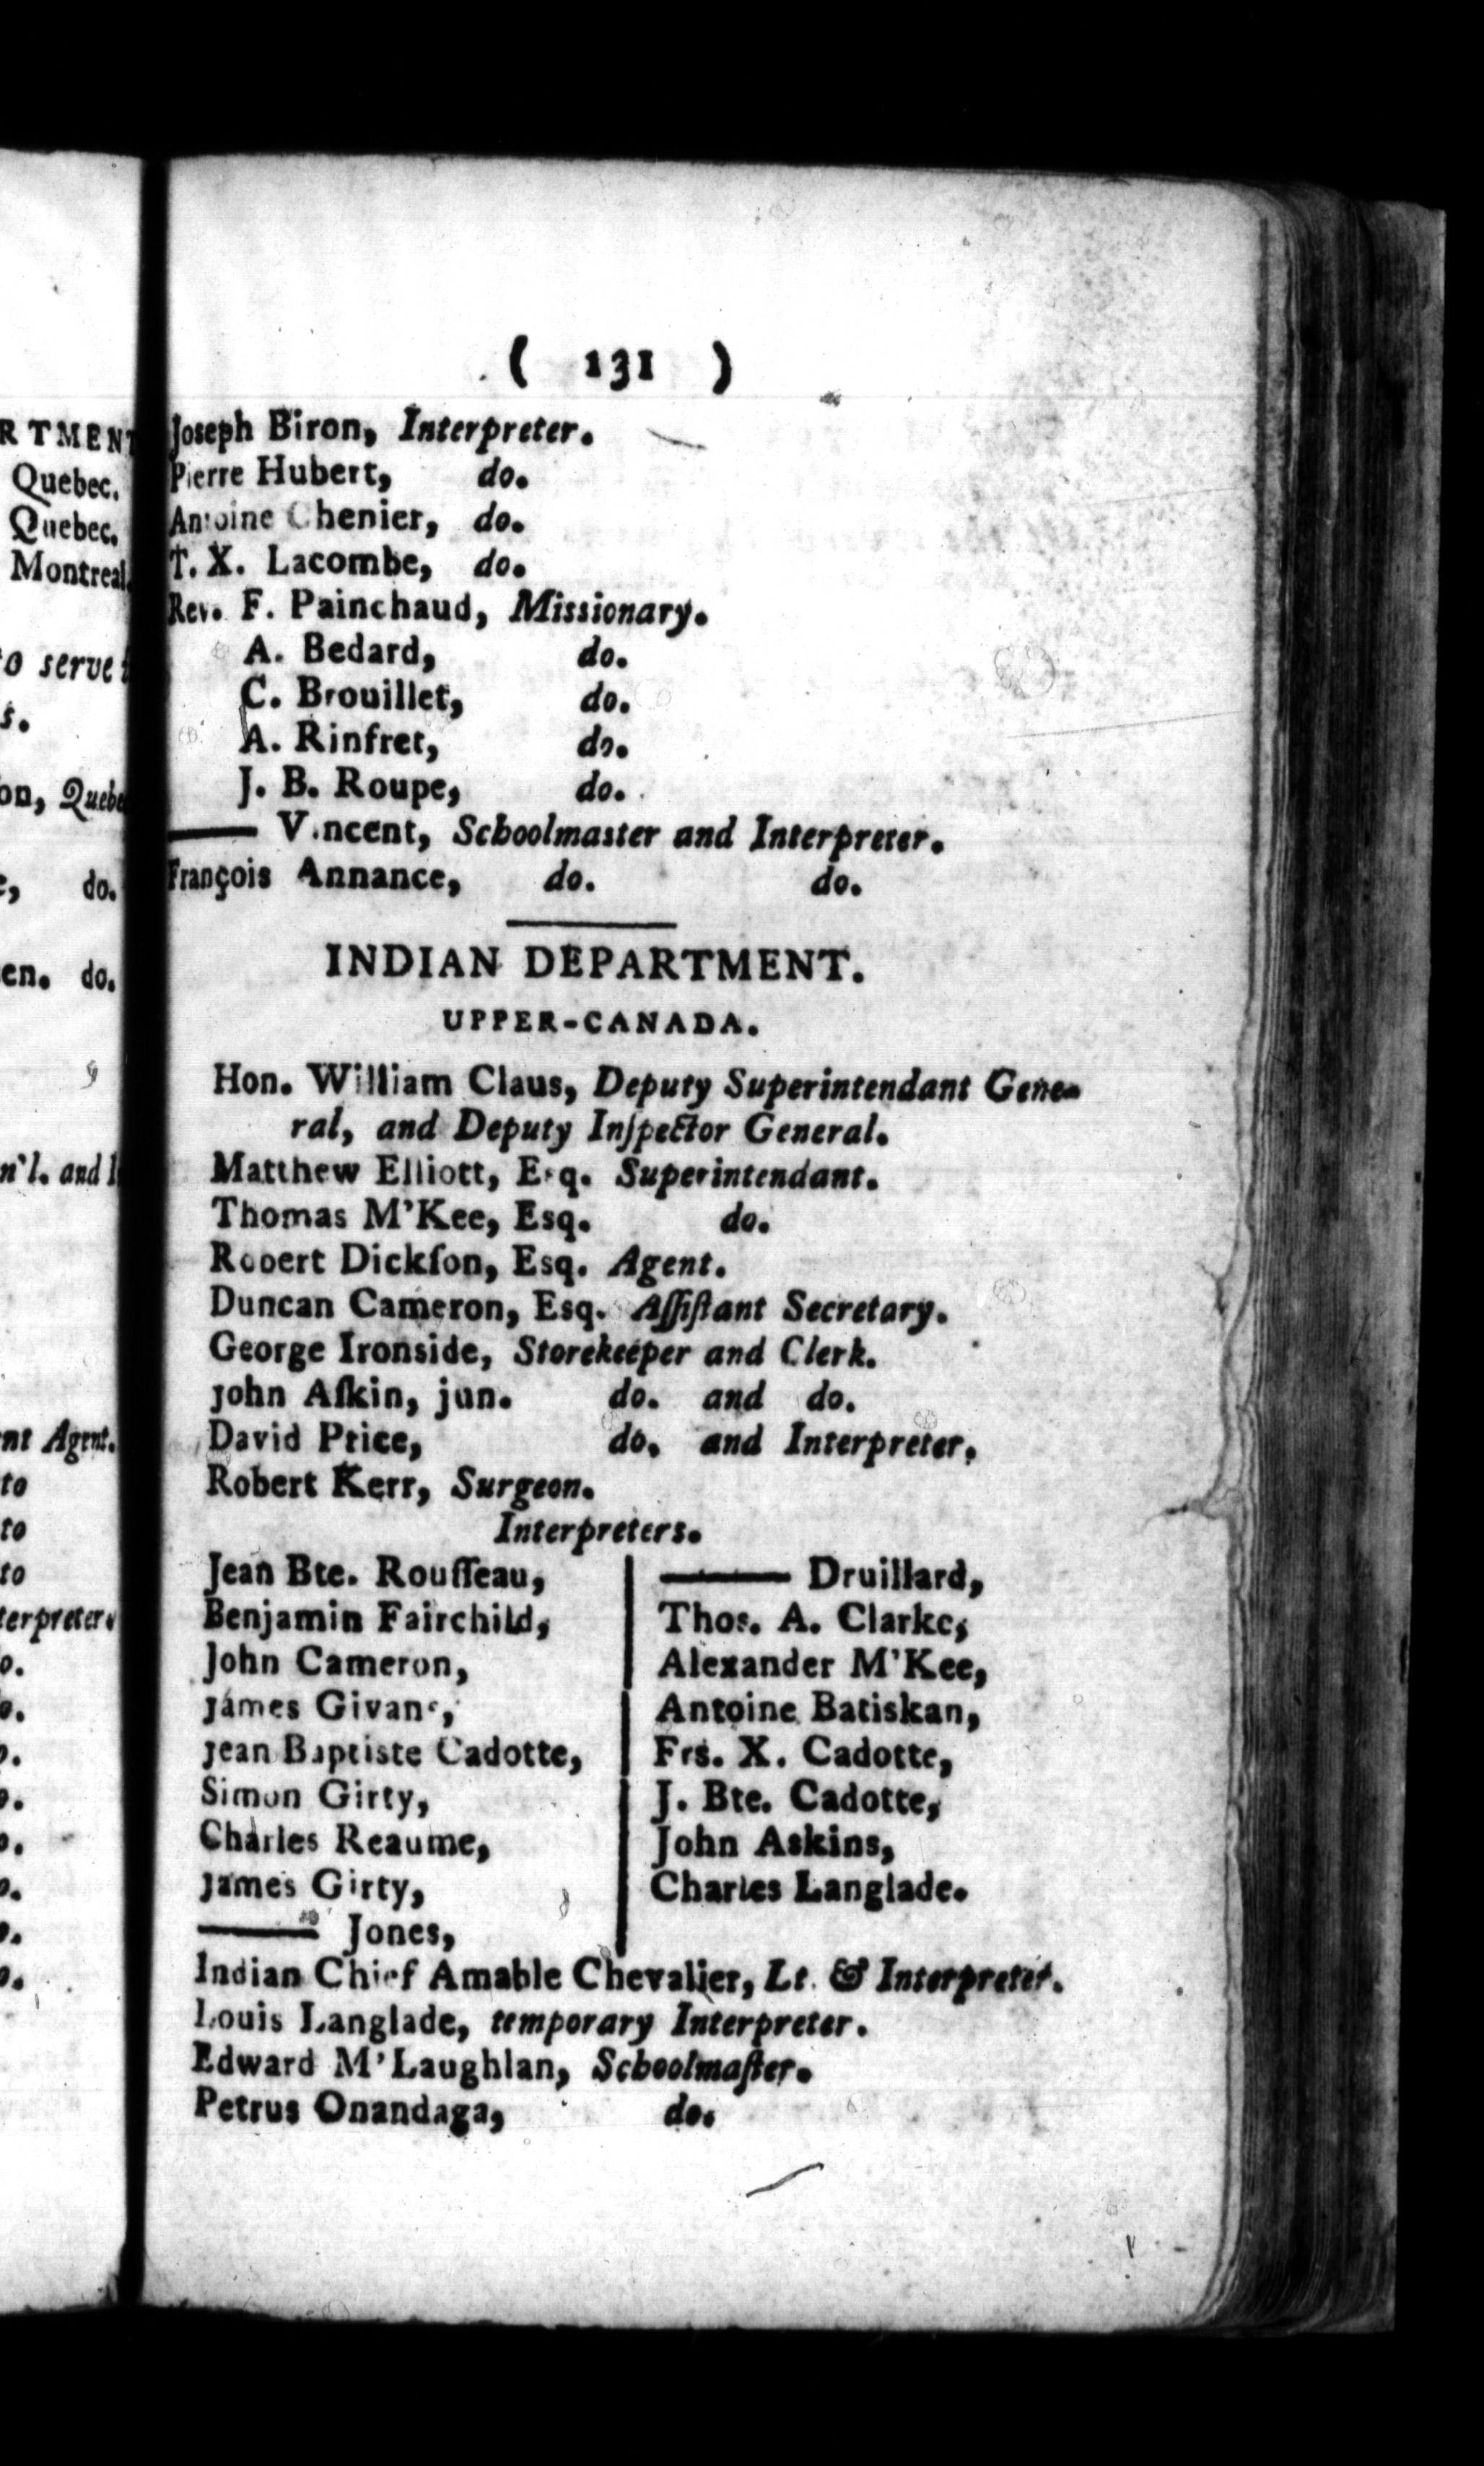 ( 131 )
Joseph Biron, Interpreter.
Pierre Hubert, do.
Antoine Chenier, do.
T. X. Lacombe, do.
Rev. F. Painchaud, Missionary.
A. Bedard, do.
C. Brouillet, do.
A. Rinfret, do.
J. B. Roupe, do.
—— Vincent, Schoolmaster and Interpreter.
François Annance, do. do.
INDIAN DEPARTMENT.
UPPER-CANADA.
Hon. William Claus, Deputy Superintendant Gene-
ral, and Deputy Inſpector General.
Matthew Elliott, Esq. Superintendant.
Thomas M'Kee, Esq. do.
Robert Dickſon, Esq. Agent.
Duncan Cameron, Esq. Aſſiſtant Secretary.
George Ironside, Storekeeper and Clerk.
John Aſkin, jun. do. and do.
David Price, do. and Interpreter.
Robert Kerr, Surgeon.
Interpreters.
Jean Bte. Rouſſeau,
Benjamin Fairchild,
John Cameron,
James Givans,
Jean Baptiste Cadotte,
Simon Girty,
Charles Reaume,
James Girty,
—— Jones,
—— Druillard,
Thos. A. Clarke,
Alexander M'Kee,
Antoine Batiskan,
Frs. X. Cadotte,
J. Bte. Cadotte,
John Askins,
Charles Langlade.
Indian Chief Amable Chevalier, Lt. & Interpreter.
Louis Langlade, temporary Interpreter.
Edward M'Laughlan, Schoolmaſter.
Petrus Onandaga, do.
RTMENT
Quebec.
Quebec.
Montreal.
o serve
s.
on, Quebe
do.
en. do.
n'l. and I
nt Agent.
to
to
to
terpreter.
o.
o.
o.
o.
o.
o.
o.
o.